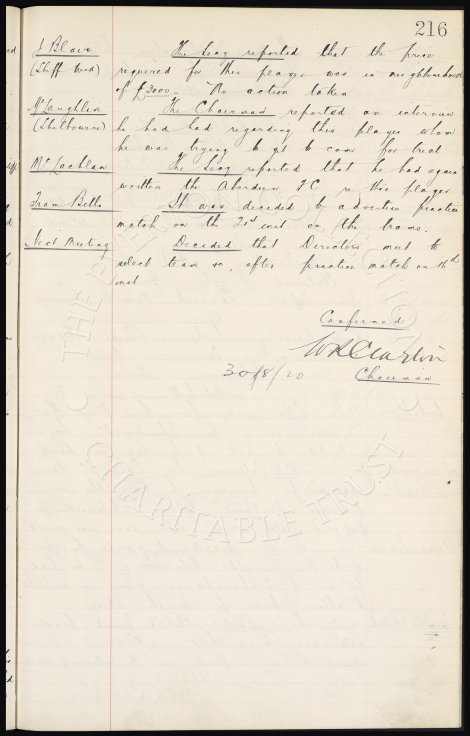 216
J Blair The Secy reported that the price
(Sheff Wed) required for this player was in neighbourhood
of £3000 - No action taken
McLaughlin The Chairman reported an interview
(Shelbourne) he had had regarding this player whom
he was trying to get to come for trial
McLachlan The Secy reported that he had again
written the Aberdeen F.C re this player
Tram Bills It was decided to advertise practice
match on the 21st inst on the trams.
Next Meeting Decided that Directors meet to
select team &c, after practice match on the
inst
Confirmed
Chairman
30/8/20
CHARITABLE TRUST